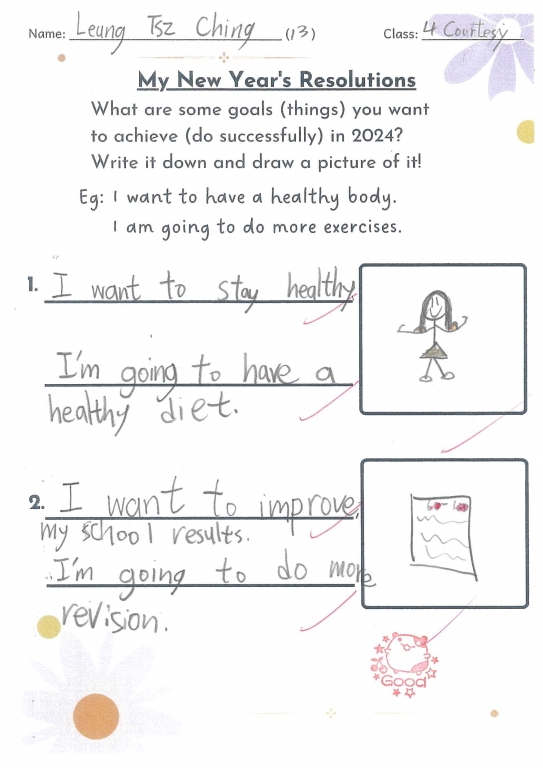 Name: Leung Tsz Ching (13) Class: 4 Courtesy
My New Year's Resolutions
What are some goals (things) you want
to achieve (do successfully) in 2024?
Write it down and draw a picture of it!
Eg: I want to have a healthy body.
I am going to do more exercises.
1. I want to stay healthy
I'm going to have a
healthy diet.
2. I want to improve
my school results.
I'm going to do more
revision.
Good